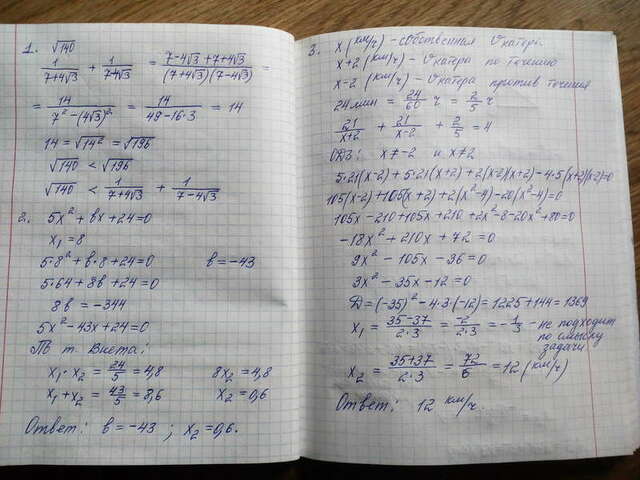 1. √140
1/(7+4√3) + 1/(7-4√3) = (7-4√3+7+4√3)/((7+4√3)(7-4√3)) =
= 14/(7²-(4√3)²) = 14/(49-16·3) = 14
14 = √14² = √196
√140 < √196
√140 < 1/(7+4√3) + 1/(7-4√3)
2. 5x² + вx + 24 = 0
x₁ = 8
5·8² + в·8 + 24 = 0 в = -43
5·64 + 8в + 24 = 0
8в = -344
5x² - 43x + 24 = 0
По т. Виета:
x₁·x₂ = 24/5 = 4,8 8x₂ = 4,8
x₁+x₂ = 43/5 = 8,6 x₂ = 0,6
Ответ: в = -43 ; x₂ = 0,6.
3. x (км/ч) - собственная v катера.
x+2 (км/ч) - v катера по течению
x-2 (км/ч) - v катера против течения
24 мин = 24/60 ч = 2/5 ч
21/(x+2) + 21/(x-2) + 2/5 = 4
ОДЗ: x ≠ -2 и x ≠ 2
5·21(x-2) + 5·21(x+2) + 2(x-2)(x+2) - 4·5(x+2)(x-2) = 0
105(x-2) + 105(x+2) + 2(x²-4) - 20(x²-4) = 0
105x - 210 + 105x + 210 + 2x² - 8 - 20x² + 80 = 0
-18x² + 210x + 72 = 0
9x² - 105x - 36 = 0
3x² - 35x - 12 = 0
D = (-35)² - 4·3·(-12) = 1225 + 144 = 1369
x₁ = (35-37)/(2·3) = -2/(2·3) = -1/3 - не подходит
по смыслу
задачи
x₂ = (35+37)/(2·3) = 72/6 = 12 (км/ч)
Ответ: 12 км/ч.